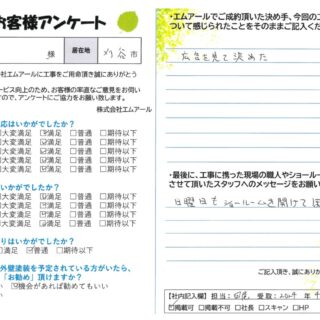 お客様アンケート
様 居住地 刈谷市
社エムアールに工事をご用命頂き誠にありがとう
ービス向上のため、お客様の率直なご意見をお伺い
すので、アンケートにご協力をお願い致します。
株式会社エムアール
応はいかがでしたか?
大変満足 ☑満足 □普通 □期待以下
大変満足 ☑満足 □普通 □期待以下
大変満足 ☑満足 □普通 □期待以下
大変満足 ☑満足 □普通 □期待以下
大変満足 ☑満足 □普通 □期待以下
りはいかがでしたか?
満足 ☑普通 □期待以下
外壁塗装を予定されている方がいたら、
「お勧め」頂けますか?
い ☑機会があれば勧めてもいい
い
・エムアールでご成約頂いた決め手、今回の工
ついて感じられたことをそのままご記入くださ
広告を見て決めた
・最後に、工事に携った現場の職人やショールー
させて頂いたスタッフへのメッセージをお願い
日曜日もショールームを開けて
ご記入頂き、誠にあり
【社内記入欄】担当: 受取:2024年4
□HP印刷可 □社長 □スキャン □HP